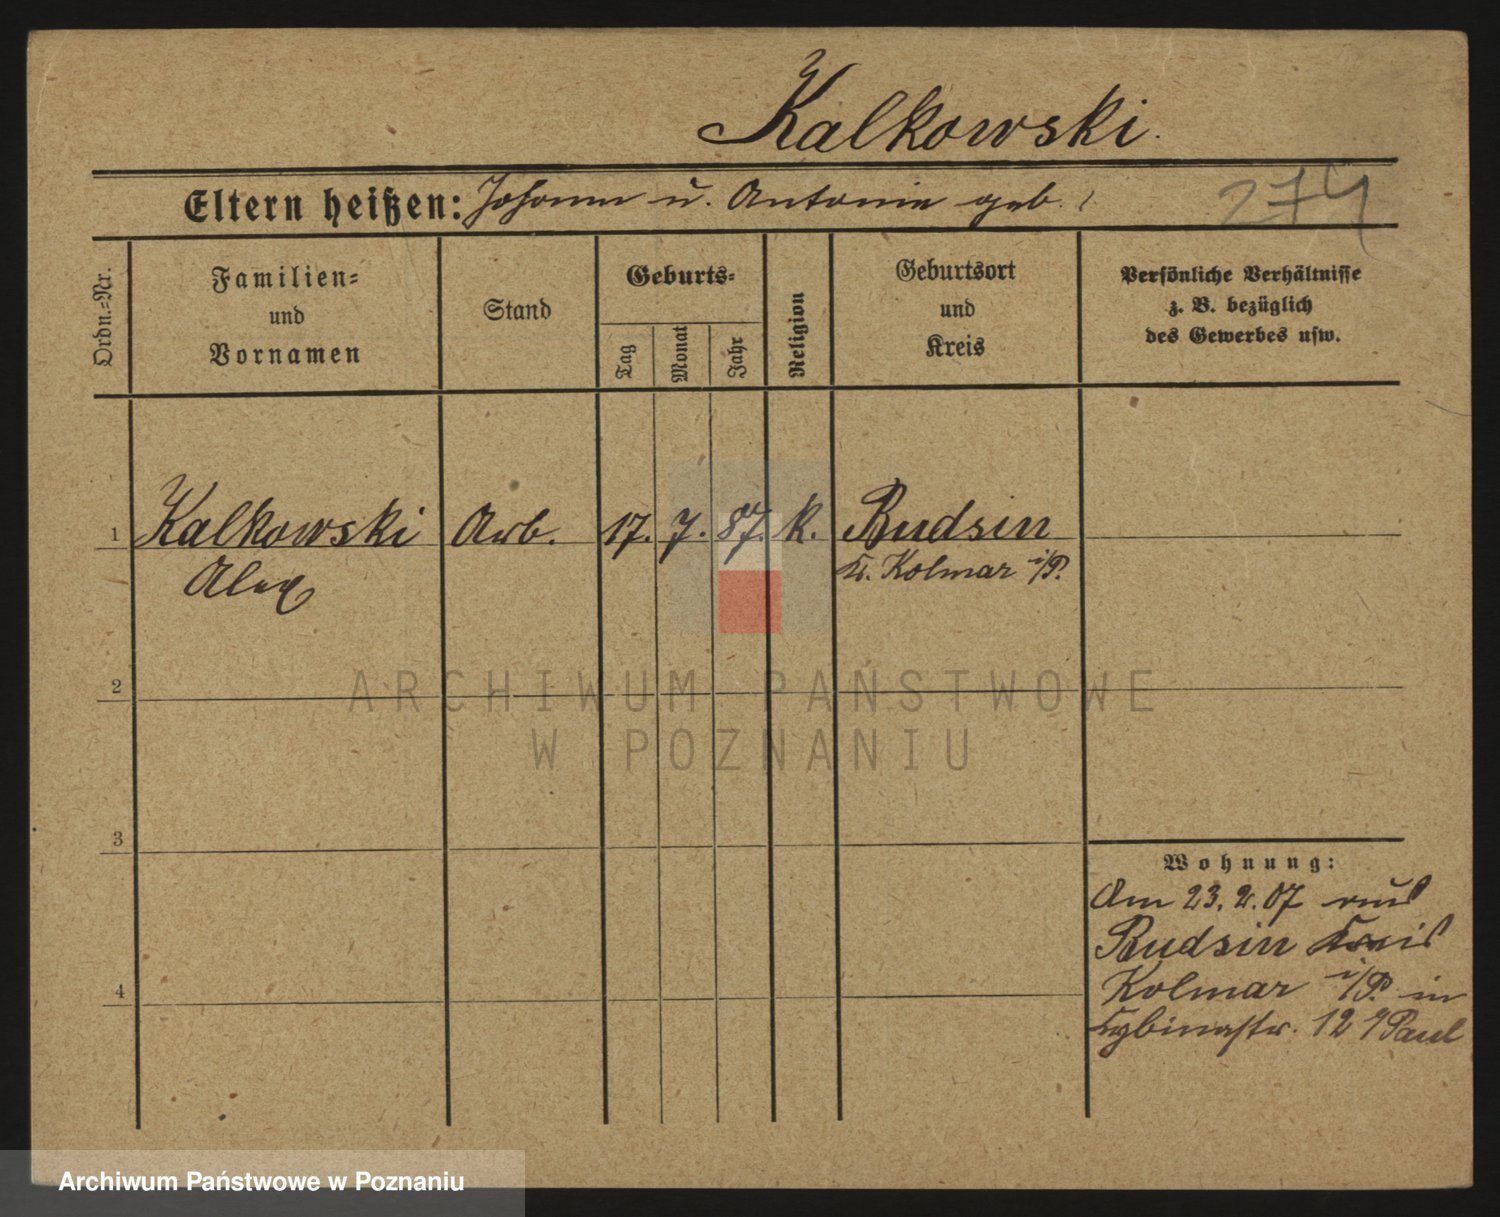 Kalkowski.
Eltern heißen: Johann u. Antonie geb. 274
Ordn.=Nr.
Familien=
und
Vornamen
Stand
Geburts=
Tag
Monat
Jahr
Religion
Geburtsort
und
Kreis
Persönliche Verhältnisse
z. B. bezüglich
des Gewerbes usw.
1 Kalkowski Arb. 17. 7. 87. k. Budsin
Alex Kr. Kolmar i/P.
2
3
4
Wohnung:
Am 23. 2. 07 aus
Budsin Kreis
Kolmar i/P. in
Cybinastr. 12 Paul
ARCHIWUM PAŃSTWOWE
W POZNANIU
Archiwum Państwowe w Poznaniu